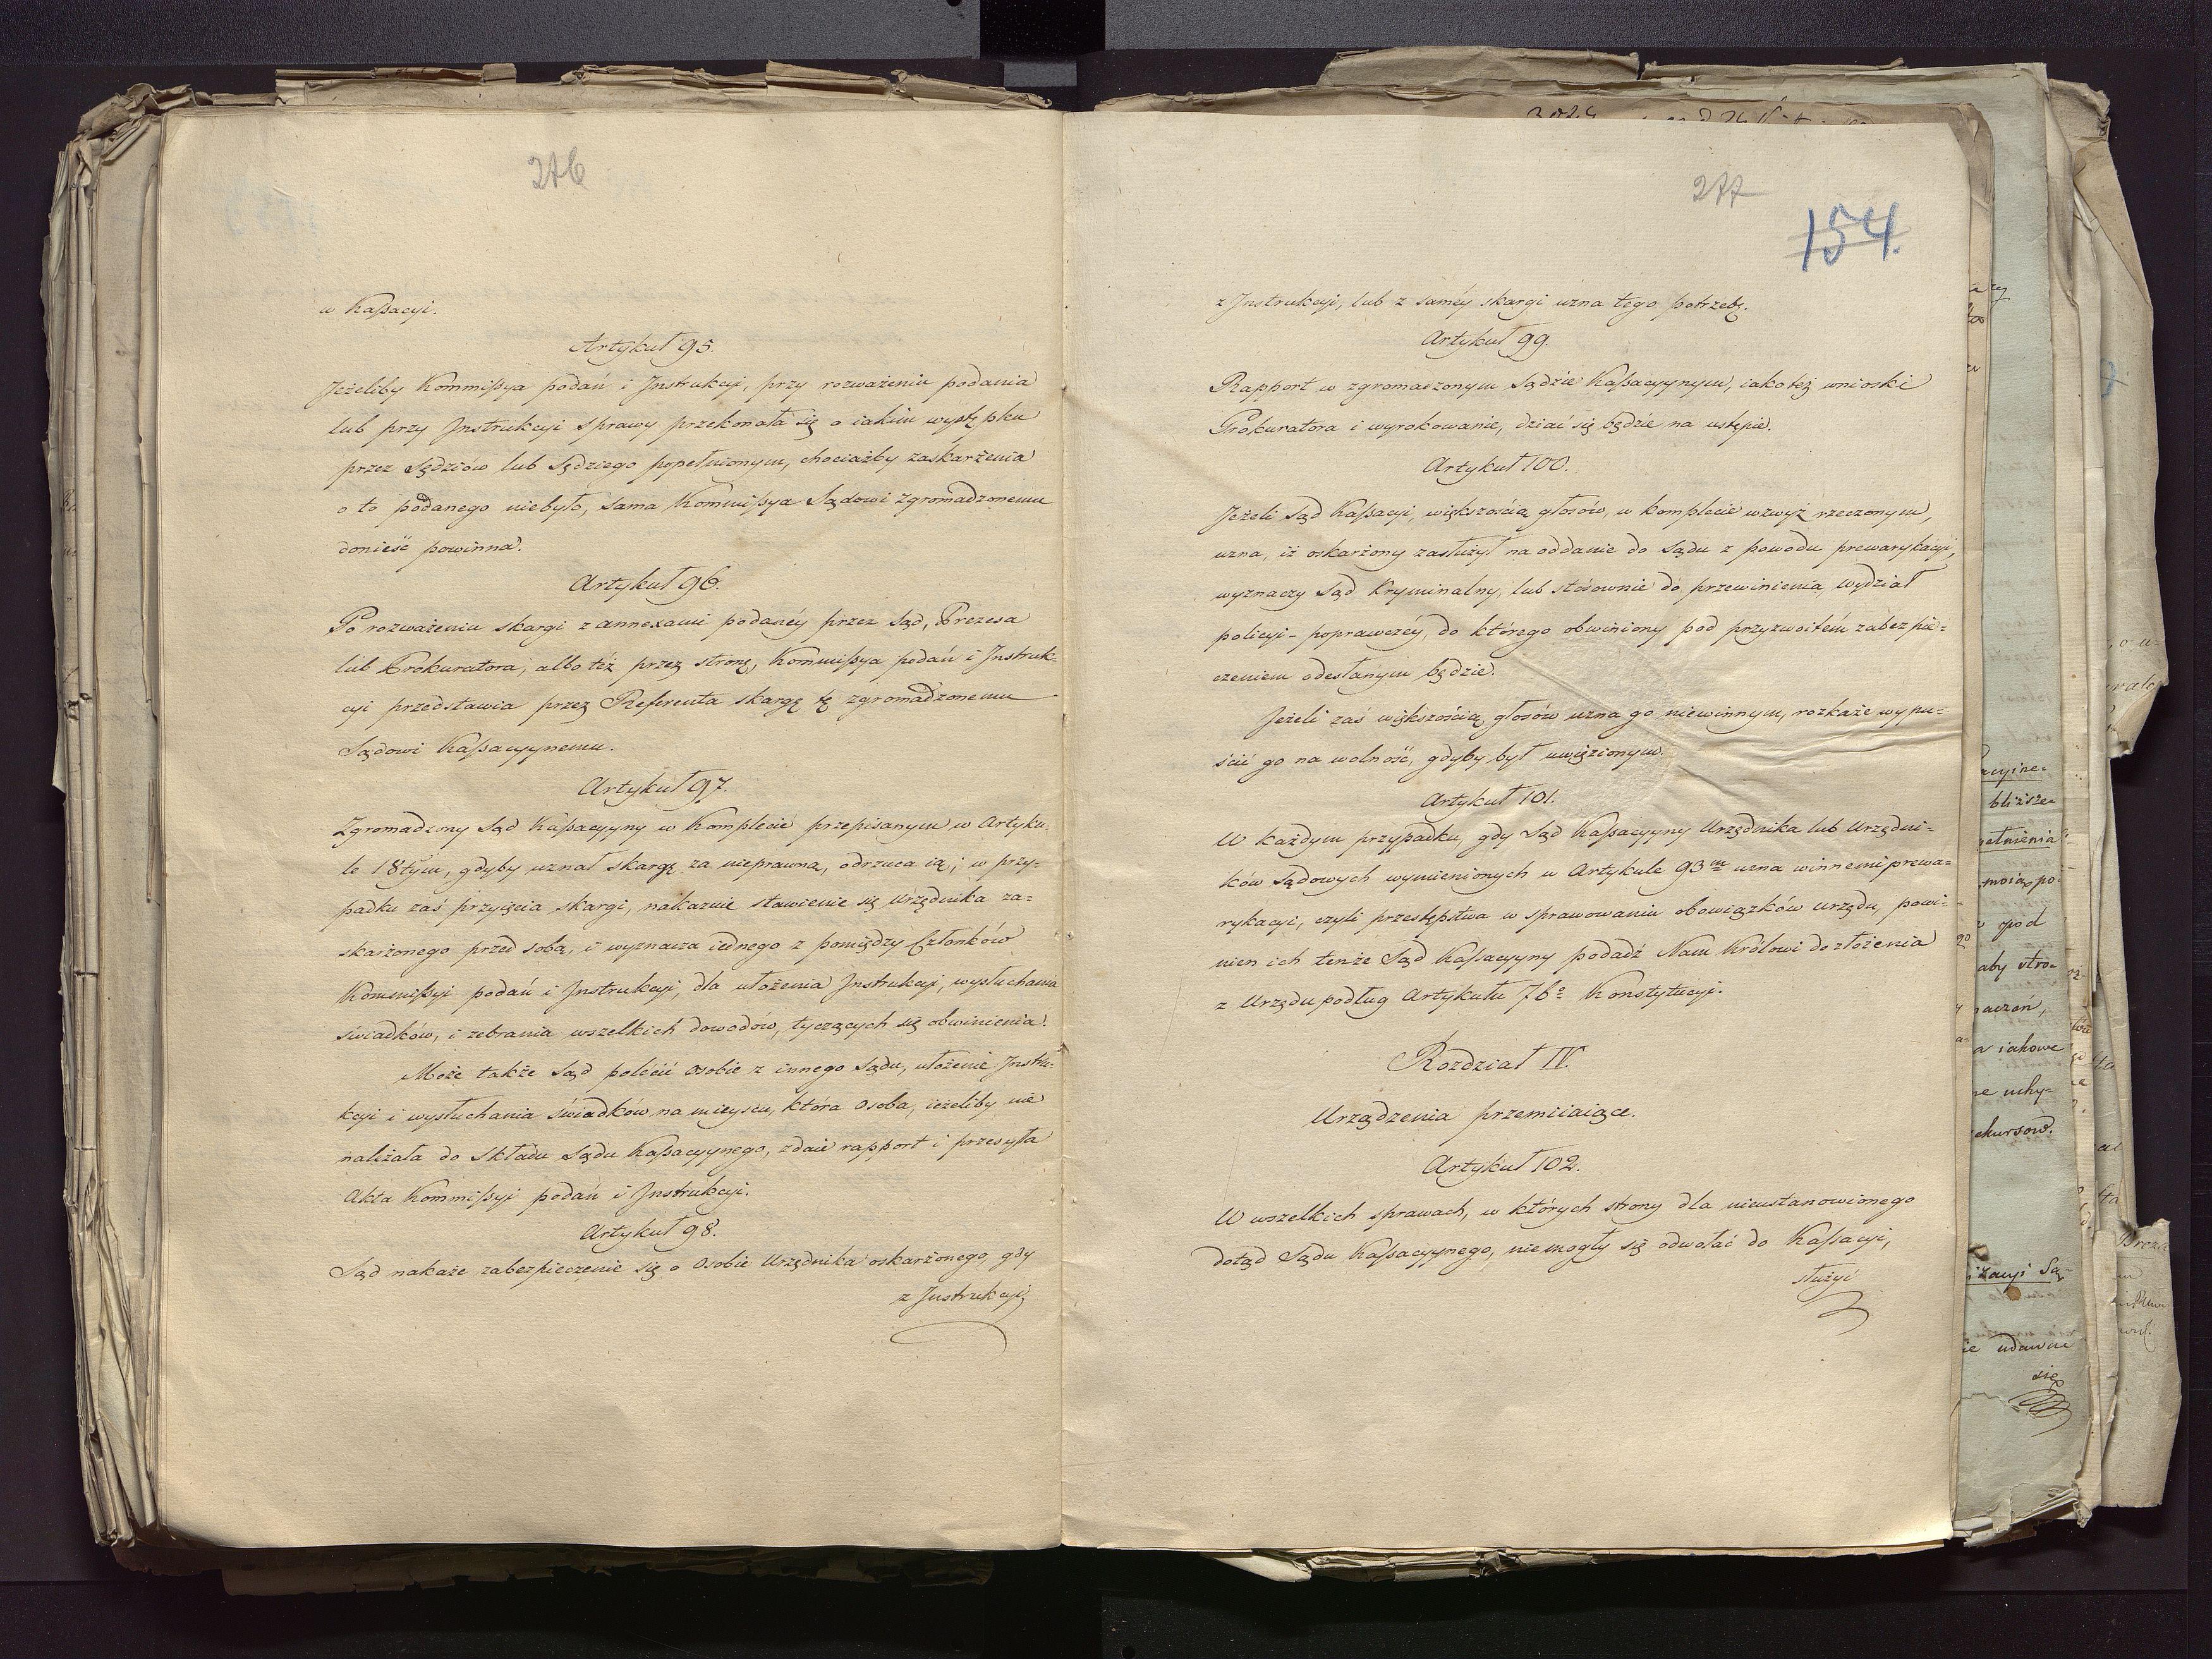 276
w Kaſsacyi.
Artykuł 95.
Jeżeliby Kommiſsya podań i Jnstrukcyi, przy rozważeniu podania
lub przy Jnstrukcyi sprawy przekonała się o iakim występku
przez Sędziów lub Sędziego popełnionym, chociażby zaskarżenia
o to podanego niebyło, sama Kommiſsya Sądowi zgromadzonemu
donieść powinna.
Artykuł 96.
Po rozważeniu skargi z annexami podanéy przez Sąd, Prezesa
lub Prokuratora, albo téż przez stronę, Kommiſsya podań i Jnstruk-
cyi przedstawia przez Referenta skargę tę zgromadzonemu
Sądowi Kaſsacyynemu.
Artykuł 97.
Zgromadzony Sąd Kaſsacyyny w Komplecie przepisanym w Artyku
le 18tym, gdyby uznał skargę za nieprawną, odrzuca ią; w przy-
padku zaś przyięcia skargi, nakazuie stawienie się Urzędnika za-
skarżonego przed sobą, i wyznacza iednego z pomiędzy Członków
Kommiſsyi podań i Jnstrukcyi, dla ułożenia Jnstrukcyi, wysłuchania
świadków, i zebrania wszelkich dowodów, tyczących się obwinienia.
Może także Sąd polecić osobie z innego Sądu, ułożenie Jnstru-
kcyi i wysłuchania świadków na mieyscu, która osoba, ieżeliby nie
należała do składu Sądu Kaſsacyynego, zdaie rapport i przesyła
Akta Kommiſsyi podań i Jnstrukcyi.
Artykuł 98.
Sąd nakaże zabezpieczenie się o osobie Urzędnika oskarżonego, gdy
z Jnstrukcyi
277
154.
z Jnstrukcyi, lub z saméy skargi uzna tego potrzebę.
Artykuł 99.
Rapport w zgromadzonym Sądzie Kaſsacyynym, iako też wnioski
Prokuratora i wyrokowanie, dziać się będzie na ustępie.
Artykuł 100.
Jeżeli Sąd Kaſsacyi, większością głosów, w komplecie wzwyż rzeczonym,
uzna, iż oskarżony zasłużył na oddanie do Sądu z powodu prewarykacyi,
wyznaczy Sąd Kryminalny, lub stósownie do przewinienia, wydział
policyi-poprawczéy, do którego obwiniony pod przyzwoitém zabezpie-
czeniem odesłanym będzie.
Jeżeli zaś większością głosów uzna go niewinnym, rozkaże wypu-
ścić go na wolność, gdyby był uwięzionym.
Artykuł 101.
W każdym przypadku, gdy Sąd Kaſsacyyny Urzędnika lub Urzędni-
ków Sądowych wymienionych w Artykule 93m uzna winnemi prewa-
rykacyi, czyli przestępstwa w sprawowaniu obowiązków urzędu, powi-
nien ich tenże Sąd Kaſsacyyny podadź Nam Królowi do złożenia
z Urzędu podług Artykułu 76o Konstytucyi.
Rozdział IV.
Urządzenia przemiiaiące.
Artykuł 102.
W wszelkich sprawach, w których strony dla nieustanowionego
dotąd Sądu Kaſsacyynego, niemogły się odwołać do Kaſsacyi,
służyć
bliższe
pod
aby stro-
iakowe
udawać
się